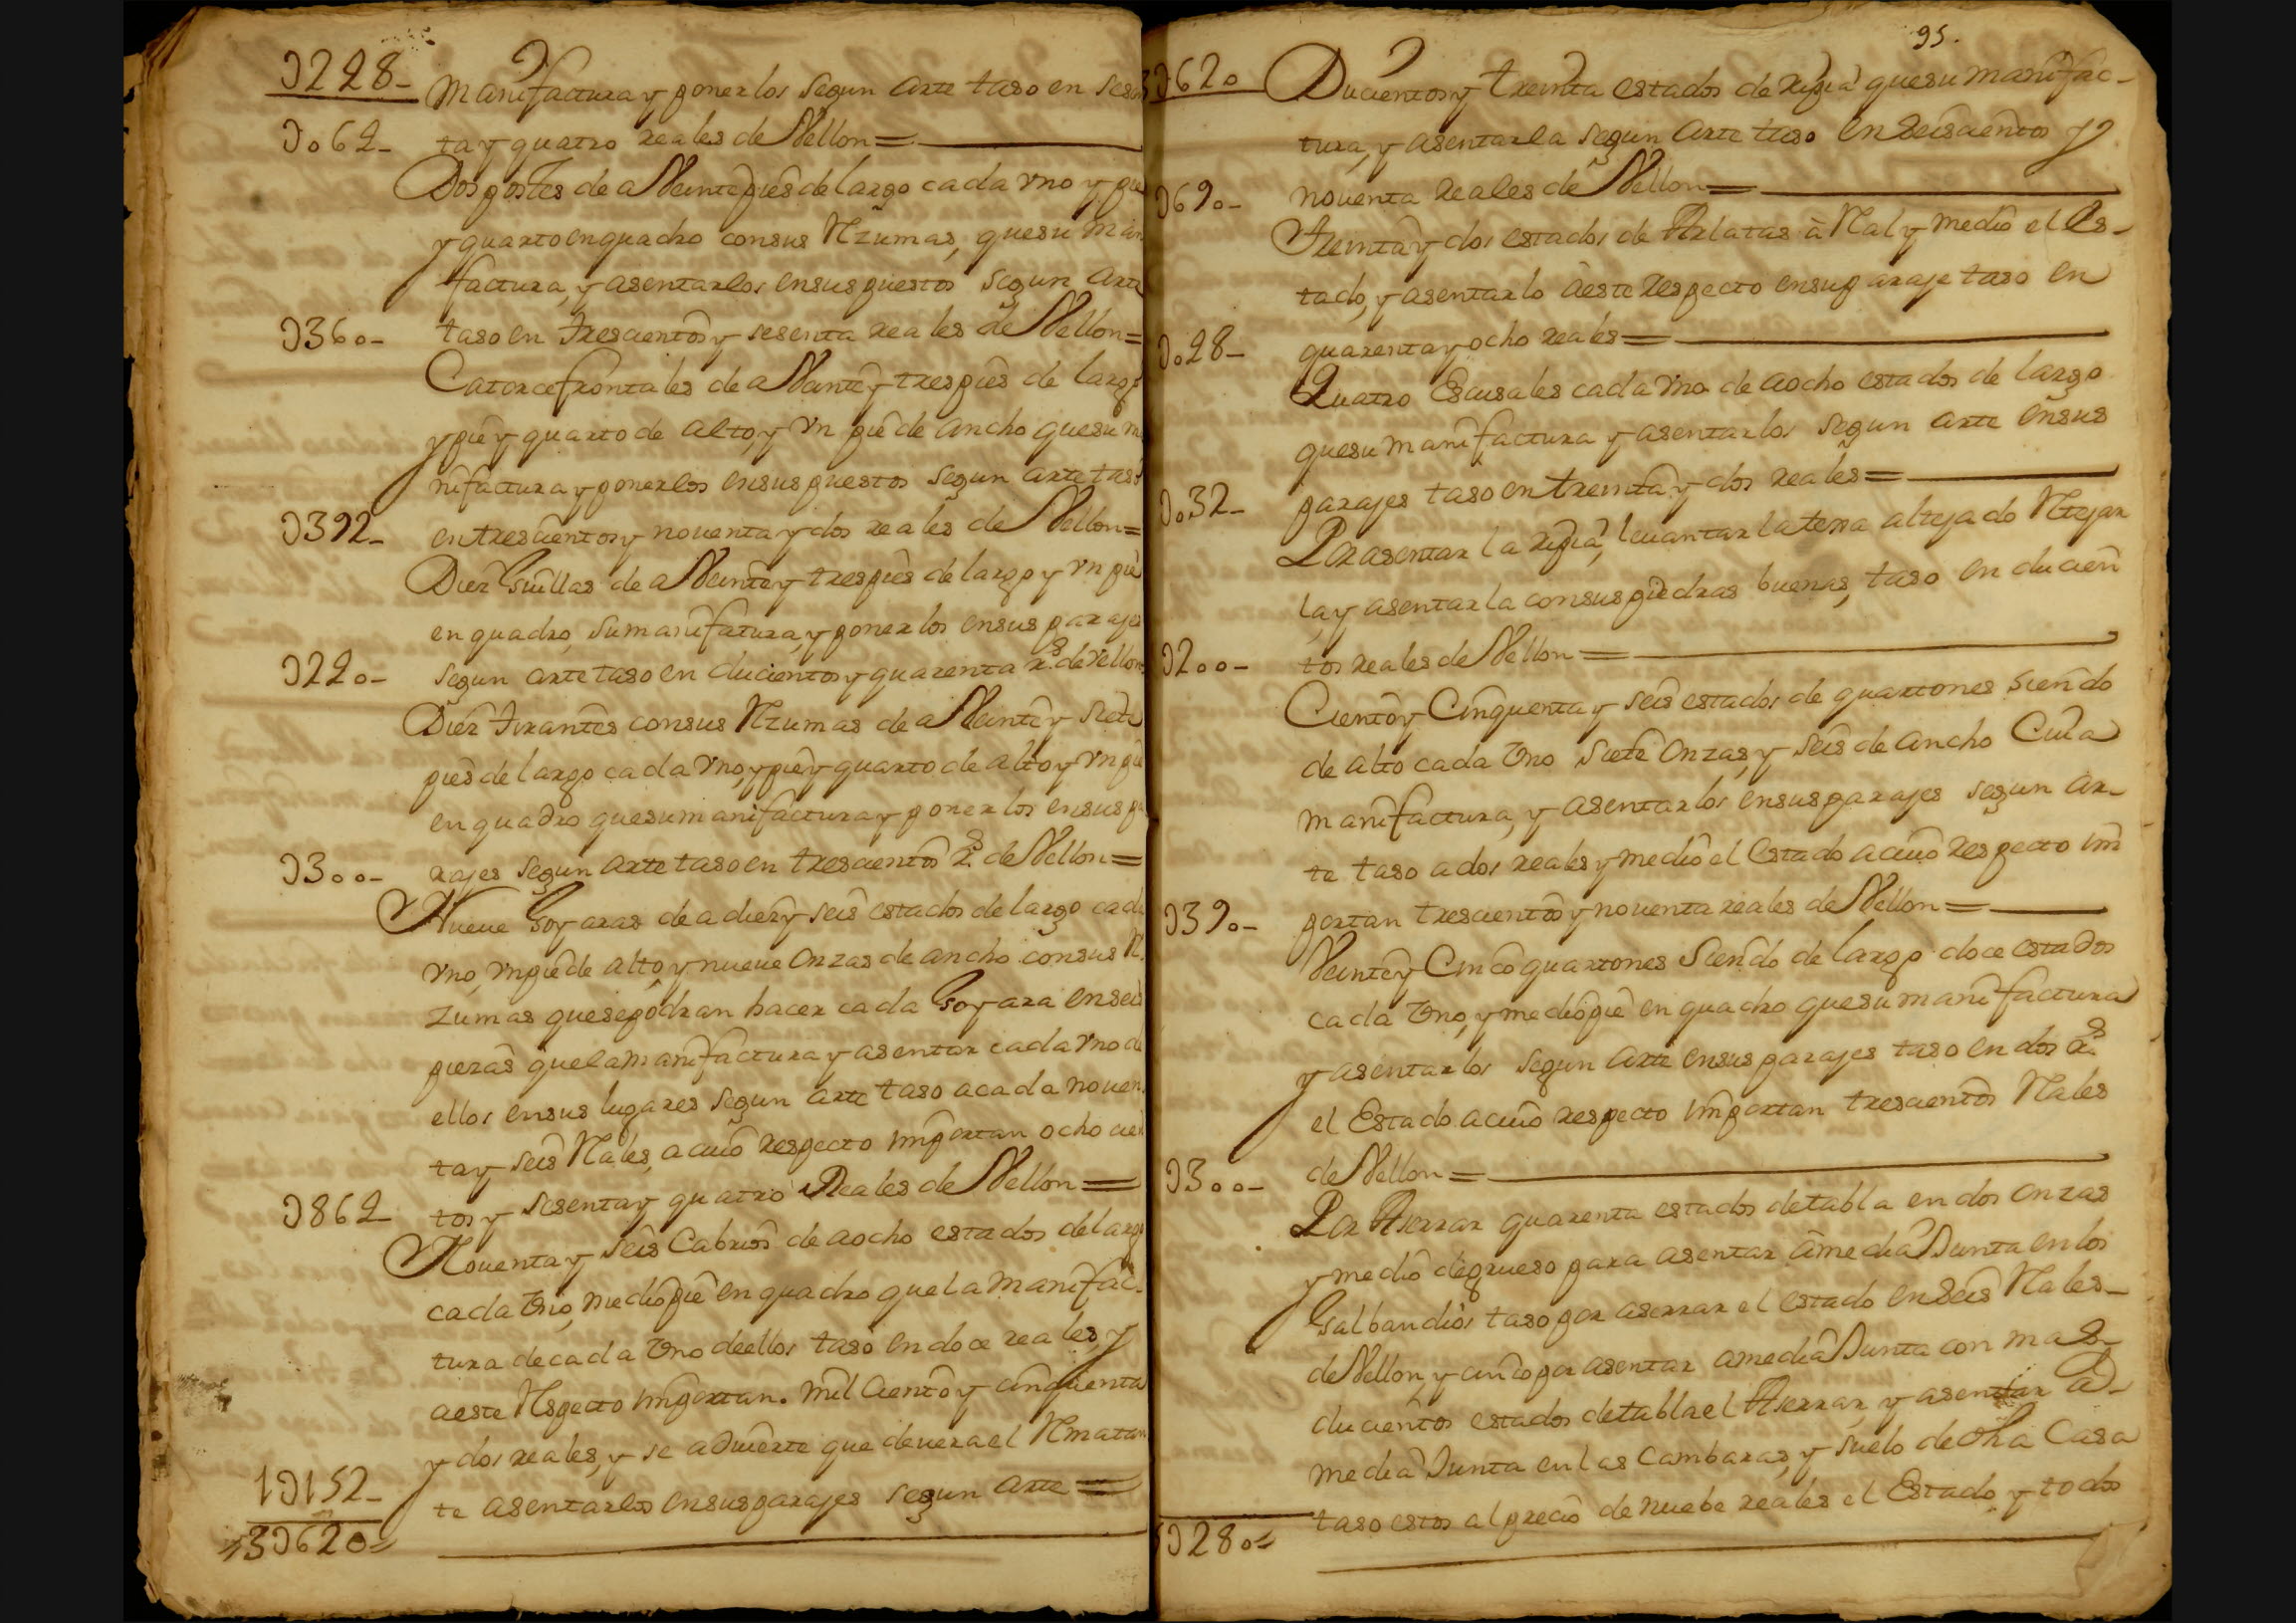 Ɔ248-
manifactura y ponerlos segun arte taso en sesen
Ɔ064- ta y quatro reales de Vellon=
Dos postes de a Veinte pies de largo cada vno y pie
y quarto en quadro con sus Rzumas, que su man
factura, y asentarlos en sus puestos segun arte
Ɔ360- taso en trescientos y sesenta reales de Vellon=
Catorce frontales de a Veinte y tres pies de largo
y pie y quarto de alto, y vn pie de ancho que su m
nifactura y ponerlos en sus puestos segun arte taso
Ɔ392- en trescientos y noventa y dos reales de Vellon=
Diez suillas de a Veinte y tres pies de largo y vn pie
en quadro, su manifatura, y ponerlos en sus parajes
Ɔ240- segun arte taso en ducientos y quarenta rs. de vellon
Diez tirantes con sus Rzumas de a Veinte y siete
pies de largo cada vno, y pie y quarto de alto y vn pie
en quadro que su manifactura y ponerlos en sus pa
Ɔ300- rajes segun arte taso en trescientos rs. de Vellon=
Nueue Goyaras de a diez y seis estados de largo cada
vno, vn pie de alto, y nueue onzas de ancho con sus R.
zumas que se podran hacer cada Goyara en seis
piezas que la manifactura y asentar cada vno de
ellos en sus lugares segun arte taso a cada noven
ta y seis Rales, a cuio respecto importan ocho cien
Ɔ864 tos y sesenta y quatro Reales de Vellon=
Nouenta y seis Cabrios de a ocho estados de largo
cada Vno, medio pie en quadro que la manifac-
tura de cada Vno de ellos taso en doce reales, y
a este Rspecto importan. mil ciento y cinquenta
y dos reales, y se aduierte que deuera el Rmatan
1Ɔ152- te asentarlos en sus parajes segun arte=
3Ɔ620=
95.
3Ɔ620 Ducientos y treinta estados de ripia que su manifac-
tura, y asentarla segun arte taso en seiscientos y
Ɔ690- nouenta reales de Vellon=
Treinta y dos estados de Arlatas à Ral y medio el es-
tado, y asentarlo à este respecto en su paraje taso en
Ɔ048- quarenta y ocho reales=
Quatro Escusales cada vno de a ocho estados de largo
que su manifactura y asentarlos segun arte en sus
Ɔ032- parajes taso en treinta y dos reales=
Por asentar la ripia, leuantar la texa al tejado Rtejar
la, y asentarla con sus piedras buenas, taso en ducien
Ɔ200- tos reales de Vellon=
Ciento y Cinquenta y seis estados de quartones siendo
de alto cada Vno siete onzas, y seis de ancho Cuia
manifactura, y asentarlos en sus parajes segun ar-
te taso a dos reales y medio el Estado a cuio respecto im
Ɔ390- portan trescientos y nouenta reales de Vellon=
Veinte y Cinco quartones siendo de largo doce estados
cada Vno, y medio pie en quadro que su manifactura
y asentarlos segun arte en sus parajes taso en dos rs.
el Estado a cuio respecto importan trescientos Rales
Ɔ300- de Vellon=
Por Aserrar quarenta estados de tabla en dos onzas
y medio de grueso para asentar à media Junta en los
Galbandios taso por aserrar el estado en seis Rales-
de Vellon, y cinco por asentar a media Junta con mas-
ducientos estados de tabla el Aserrar, y asentar a-
media Junta en las Cambaras, y suelo de dha Casa
taso estos al precio de nuebe reales el Estado y todos
5Ɔ280=